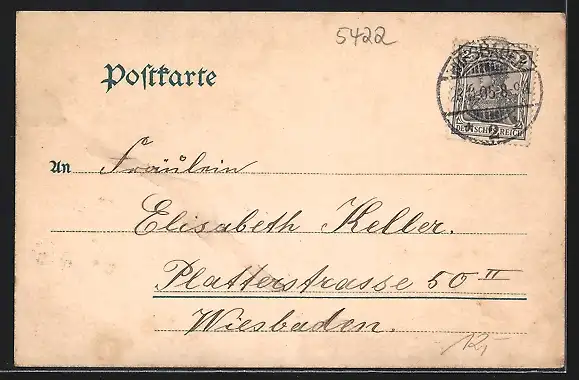 5422
Postkarte
WIESBADEN
DEUTSCHES REICH
An Fräulein
Elisabeth Keller.
Platterstrasse 50 II
Wiesbaden.
12,-